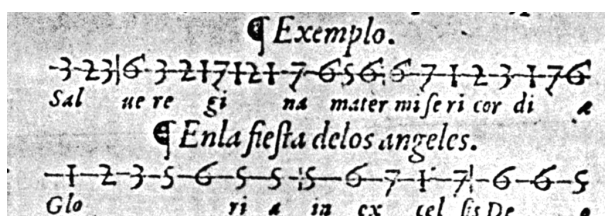 ¶ Exemplo.
3 2 3 6 3 2 1 7 1 2 1 7 6 5 6 6 7 1 2 3 1 7 6
Sal ue re gi na mater mi ſe ri cor di æ
¶ Enla fieſta delos angeles.
1 2 3 5 6 5 5 5 6 7 1 7 6 6 5
Glo ri a in ex cel ſis De o